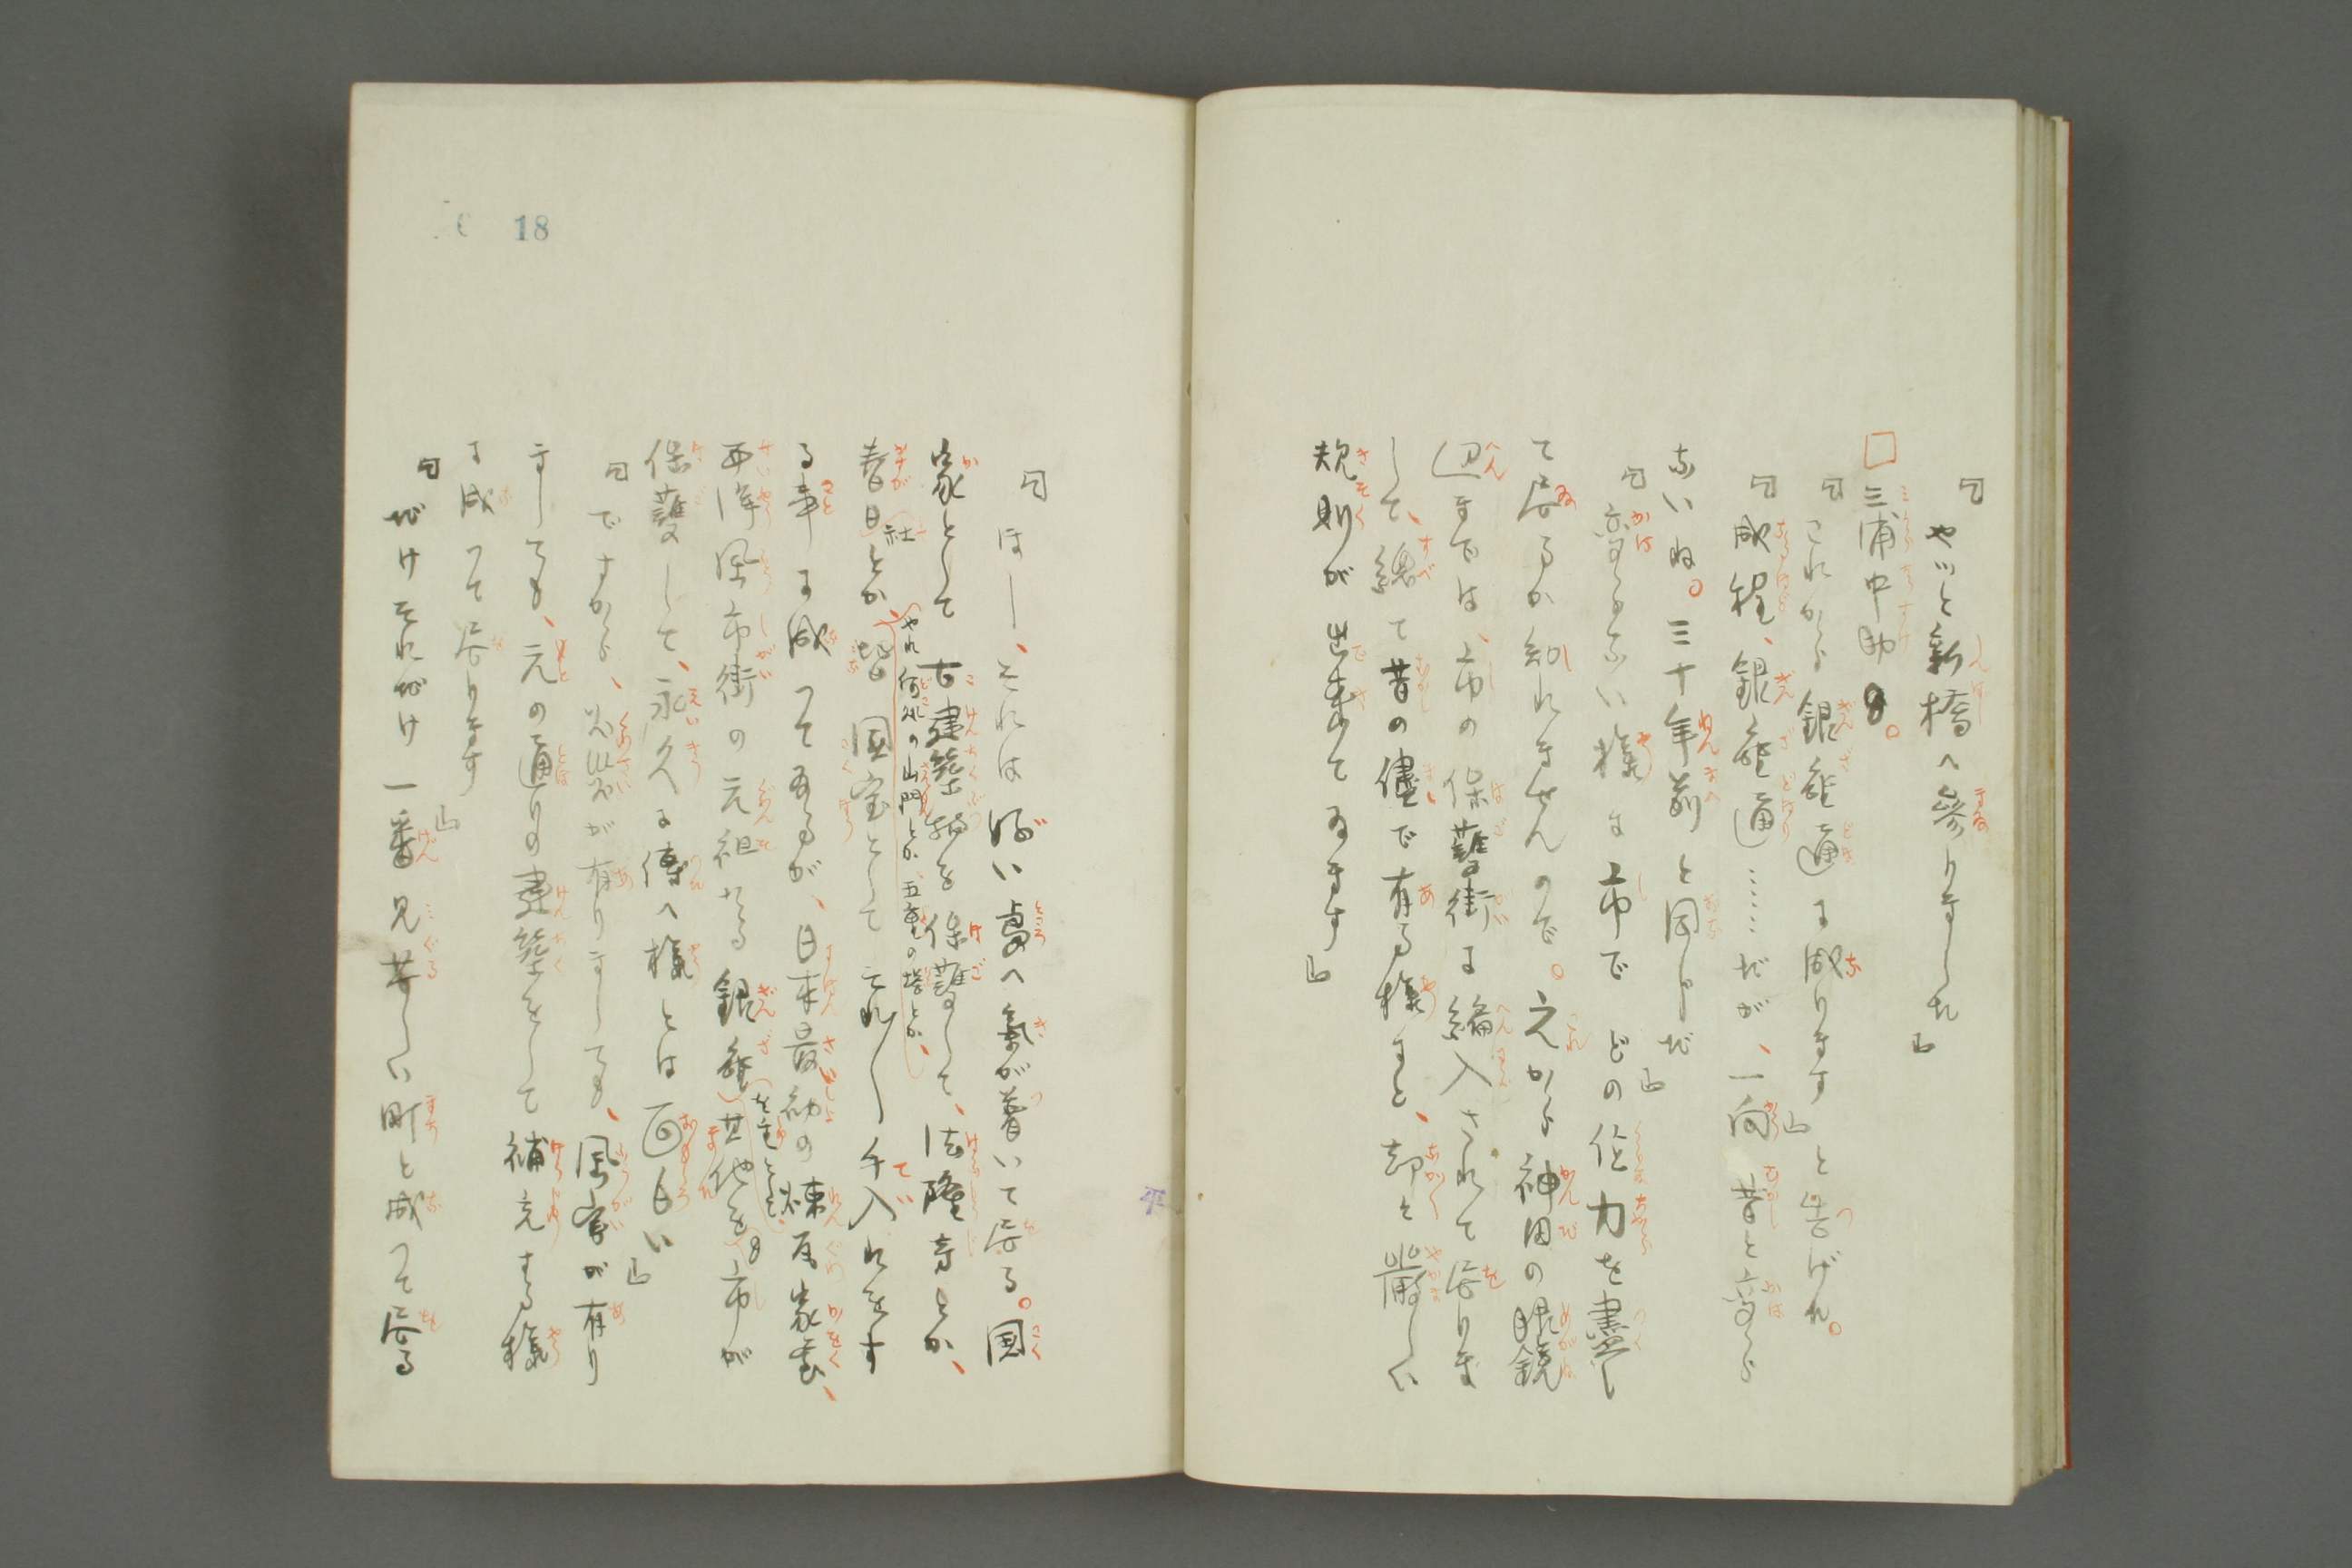 「やッと新橋へ參りました」
□三浦中助
「これから銀座通に成ります」と告げれ。
「成程、銀座通……だが、一向昔と変ら
ないね。三十年前と同じだ」
「変らない様に市でどの位力を盡し
て居るか知れませんので。之から神田の眼鏡
辺までは、市の保護街に編入されて居りま
して、總て昔の儘で有る様にと、却々嚴しい
規則が出来てゐます」
「ほー、それは好い處へ氣が着いて居る。国
家として古建築物を保護して、法隆寺とか、
春日社とか、やれ何処の山門とか、五重の塔とか、
皆国宝としてそれ〳〵手入れをす
る事に成つて居るが、日本最初の煉瓦家屋、
西洋風市街の元祖たる銀座を
其儘市が
保護して、永久に傳へ様とは面白い」
「ですから、火災が有りましても、風害が有り
ましても、元の通りの建築をして補充する様
に成つて居ります」
「だけそれだけ一番見苦しい町と成つて居る
18